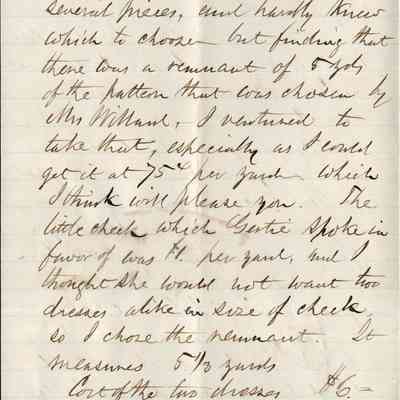 several pieces, and hardly knew
which to choose but finding that
there was a remnant of 5 yds
of the pattern that was chosen by
Mrs Willard, - I ventured to
take that, especially as I could
get it at 75c per yard which
I think will please you. The
little check which Gertie spoke in
favor of was $1. per yard, and I
thought she would not want two
dresses alike in size of check,
so I chose the remnant. It
measures 5 1/3 yards
Cost of the two dresses $6 =